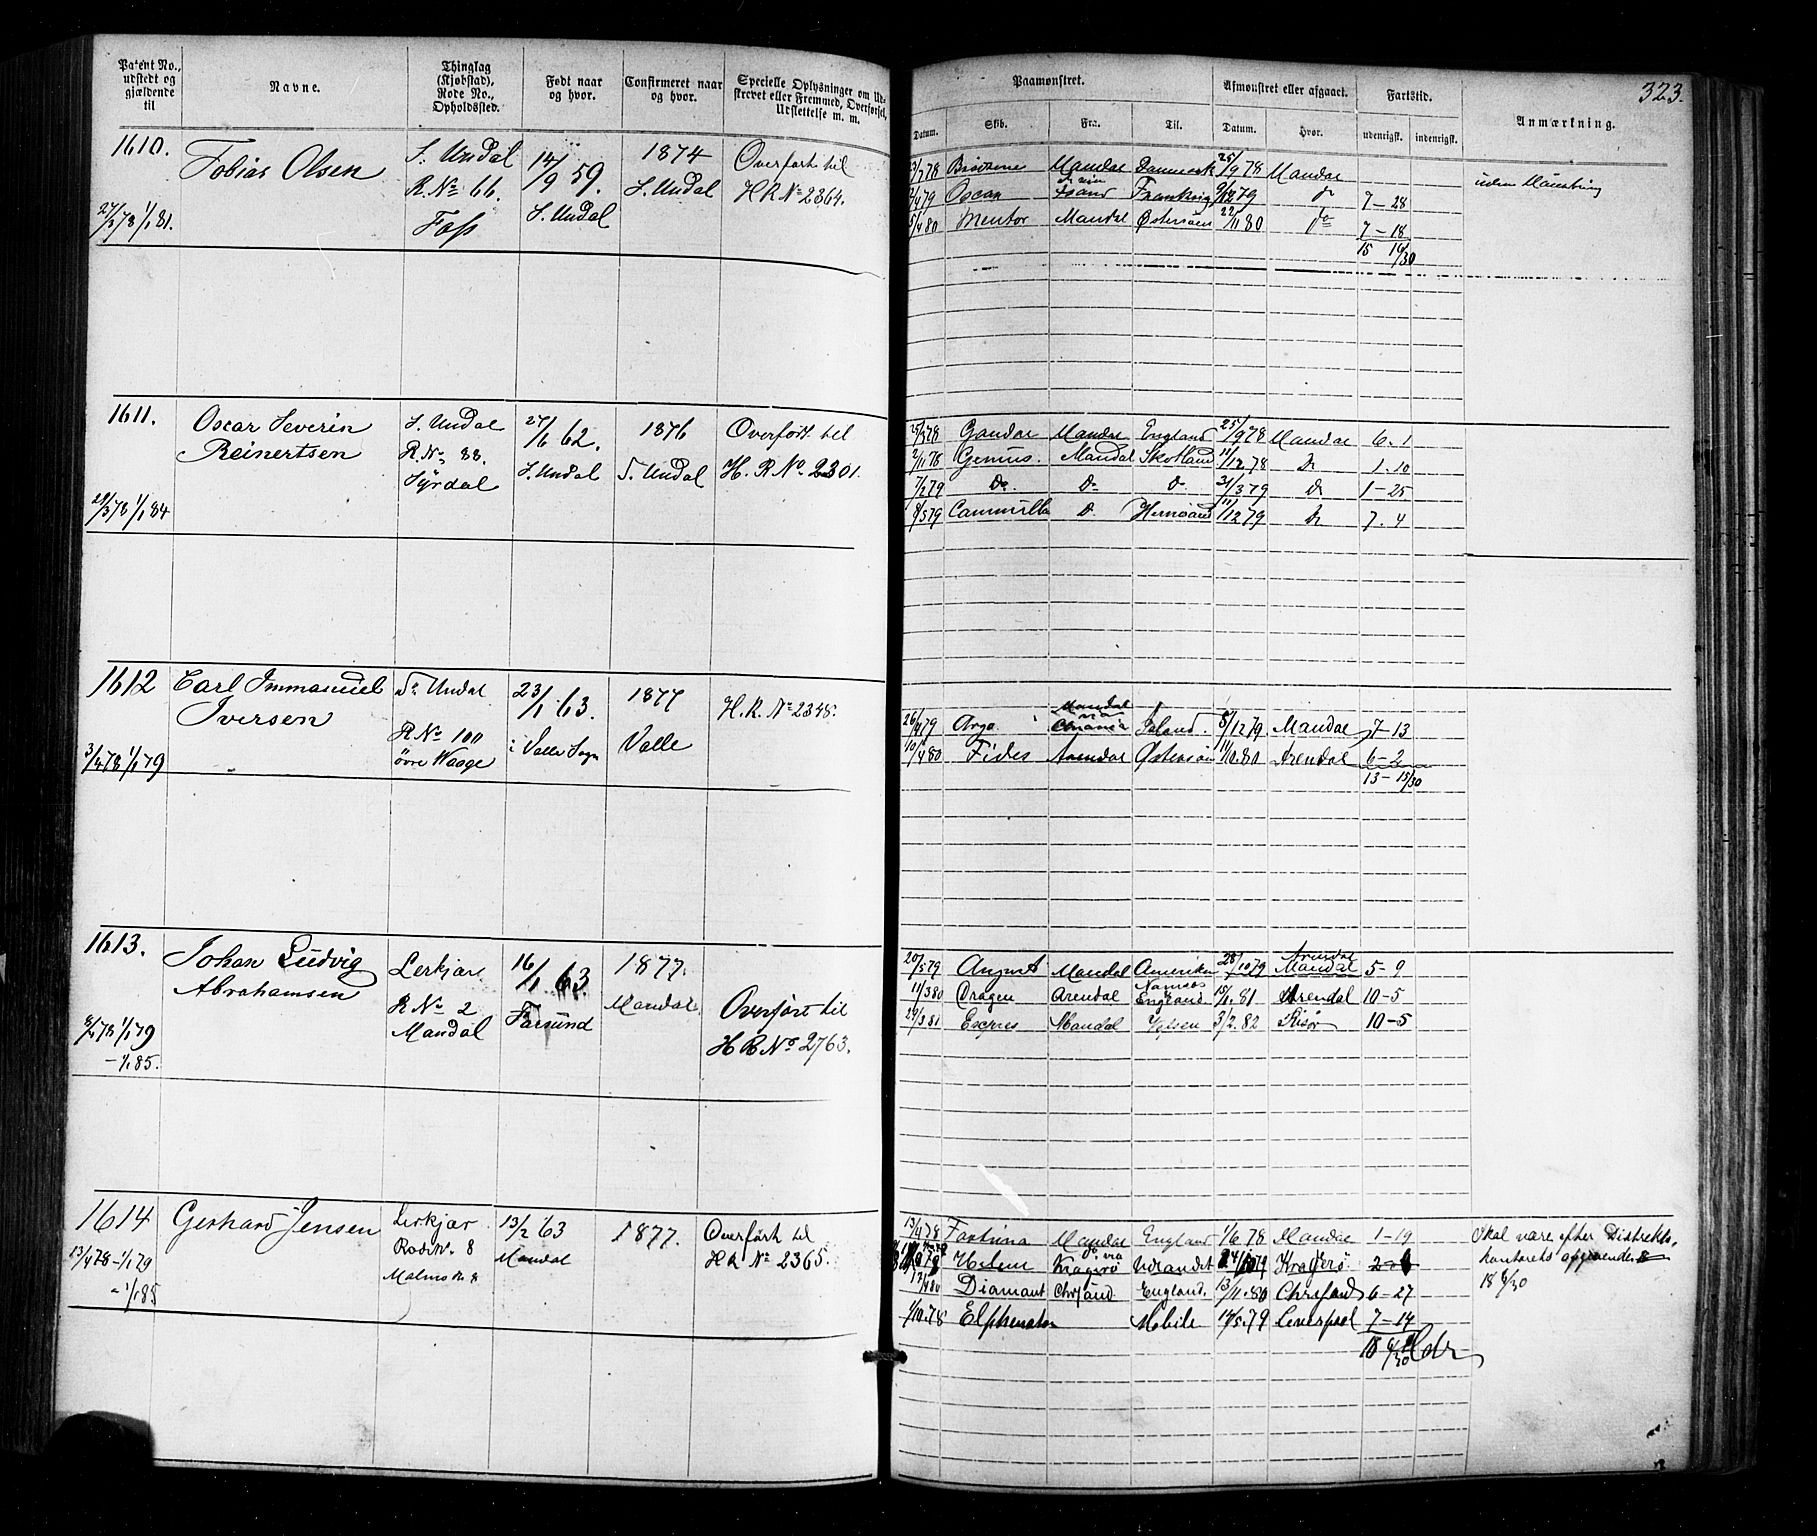 Patent No., udstedt og gjældende til
Navne.
Thinglag (Kjøbstad), Rode No., Opholdssted.
Født naar og hvor.
Confirmeret naar og hvor.
Specielle Oplysninger om Udskrevet eller Fremmed, Overførsel, Udslettelse m. m.
Paamønstret.
Datum. Skib. Fra. Til.
Afmønstret eller afgaaet.
Datum. Hvor.
Fartstid.
udenrigsk. indenrigsk.
Anmærkning.
323.
1610.
27/3 78 1/1 81.
Tobias Olsen
S. Undal
R. No 66.
Foss
14/9 59.
S. Undal
1874
S. Undal
Overført til
H R No 2364.
78 Mandal Danmark 25/9 78 Mandal
uden Mønstring
2/4 79 Oscar Frankrig 79 do 7 - 28
5/4 80 Mentor Mandal Østersøen 22/11 80 do 7 - 18
15 16/30
1611.
29/3 78 1/1 84
Oscar Severin
Reinertsen
S. Undal
R. No 88.
Syrdal
27/6 62.
S. Undal
1876
S. Undal
Overført til
H. R No. 2301.
25/3 78 Gandar Mandal England 25/9 78 Mandal 6. 1
2/11 78 Genius. Mandal Skotland 11/12 78 Do 1. 10
7/2 79 Do. Do Do. 31/3 79 Do 1 - 25
8/5 79 Cammilla Do. Hernösand 11/12 79 Do 7. 4
1612
3/4 78 1/1 79
Carl Immanuel
Iversen
S. Undal
R No 100
övre Waage
23/1 63.
i Valle Sogn
1877
Valle
H. R. No 2348.
Mandal
via
26/4 79 Argo Chrania Island. 8/12 79 Mandal 7 - 13
10/4 80 Fides Arendal Østersøen 11/10. 80 Arendal 6 - 2
13 - 15/30
1613.
8/4 78 1/1 79
- 1/1 85.
Johan Ludvig
Abrahamsen
Lerkjær
R No 2
Mandal
16/1 63
Farsund
1877.
Mandal.
Overført til
H R No 2763.
Arendal
20/5 79 August Mandal Amerika 28/10 79 Mandal 5 - 9
Namsos
11/3 80 Dragen Arendal England 15/1. 81 Arendal 10 - 5
29/3 81 Expres Mandal 3/2. 82 Risør 10 - 5
1614
13/4 78 - 1/1 79
- 1/1 85
Gerhard Jensen
Lerkjær
Rode No. 8
Malmö No 8
13/2 63
Mandal
1877.
Overført til
H R No 2365.
13/4 78 Fortuna Mandal England 1/6 78 Mandal 1 - 19
Helene Kragerö Udlandet 79 Kragerø
80 Diamant Chrsand England. 13/11. 80 Chrsand 6 - 27
10. 78 Elphenston Mobile 14/5. 79 Liverpool 7 - 14
18 6/30
Skal være efter Distrikts-
kontorets opgaende
18 6/30